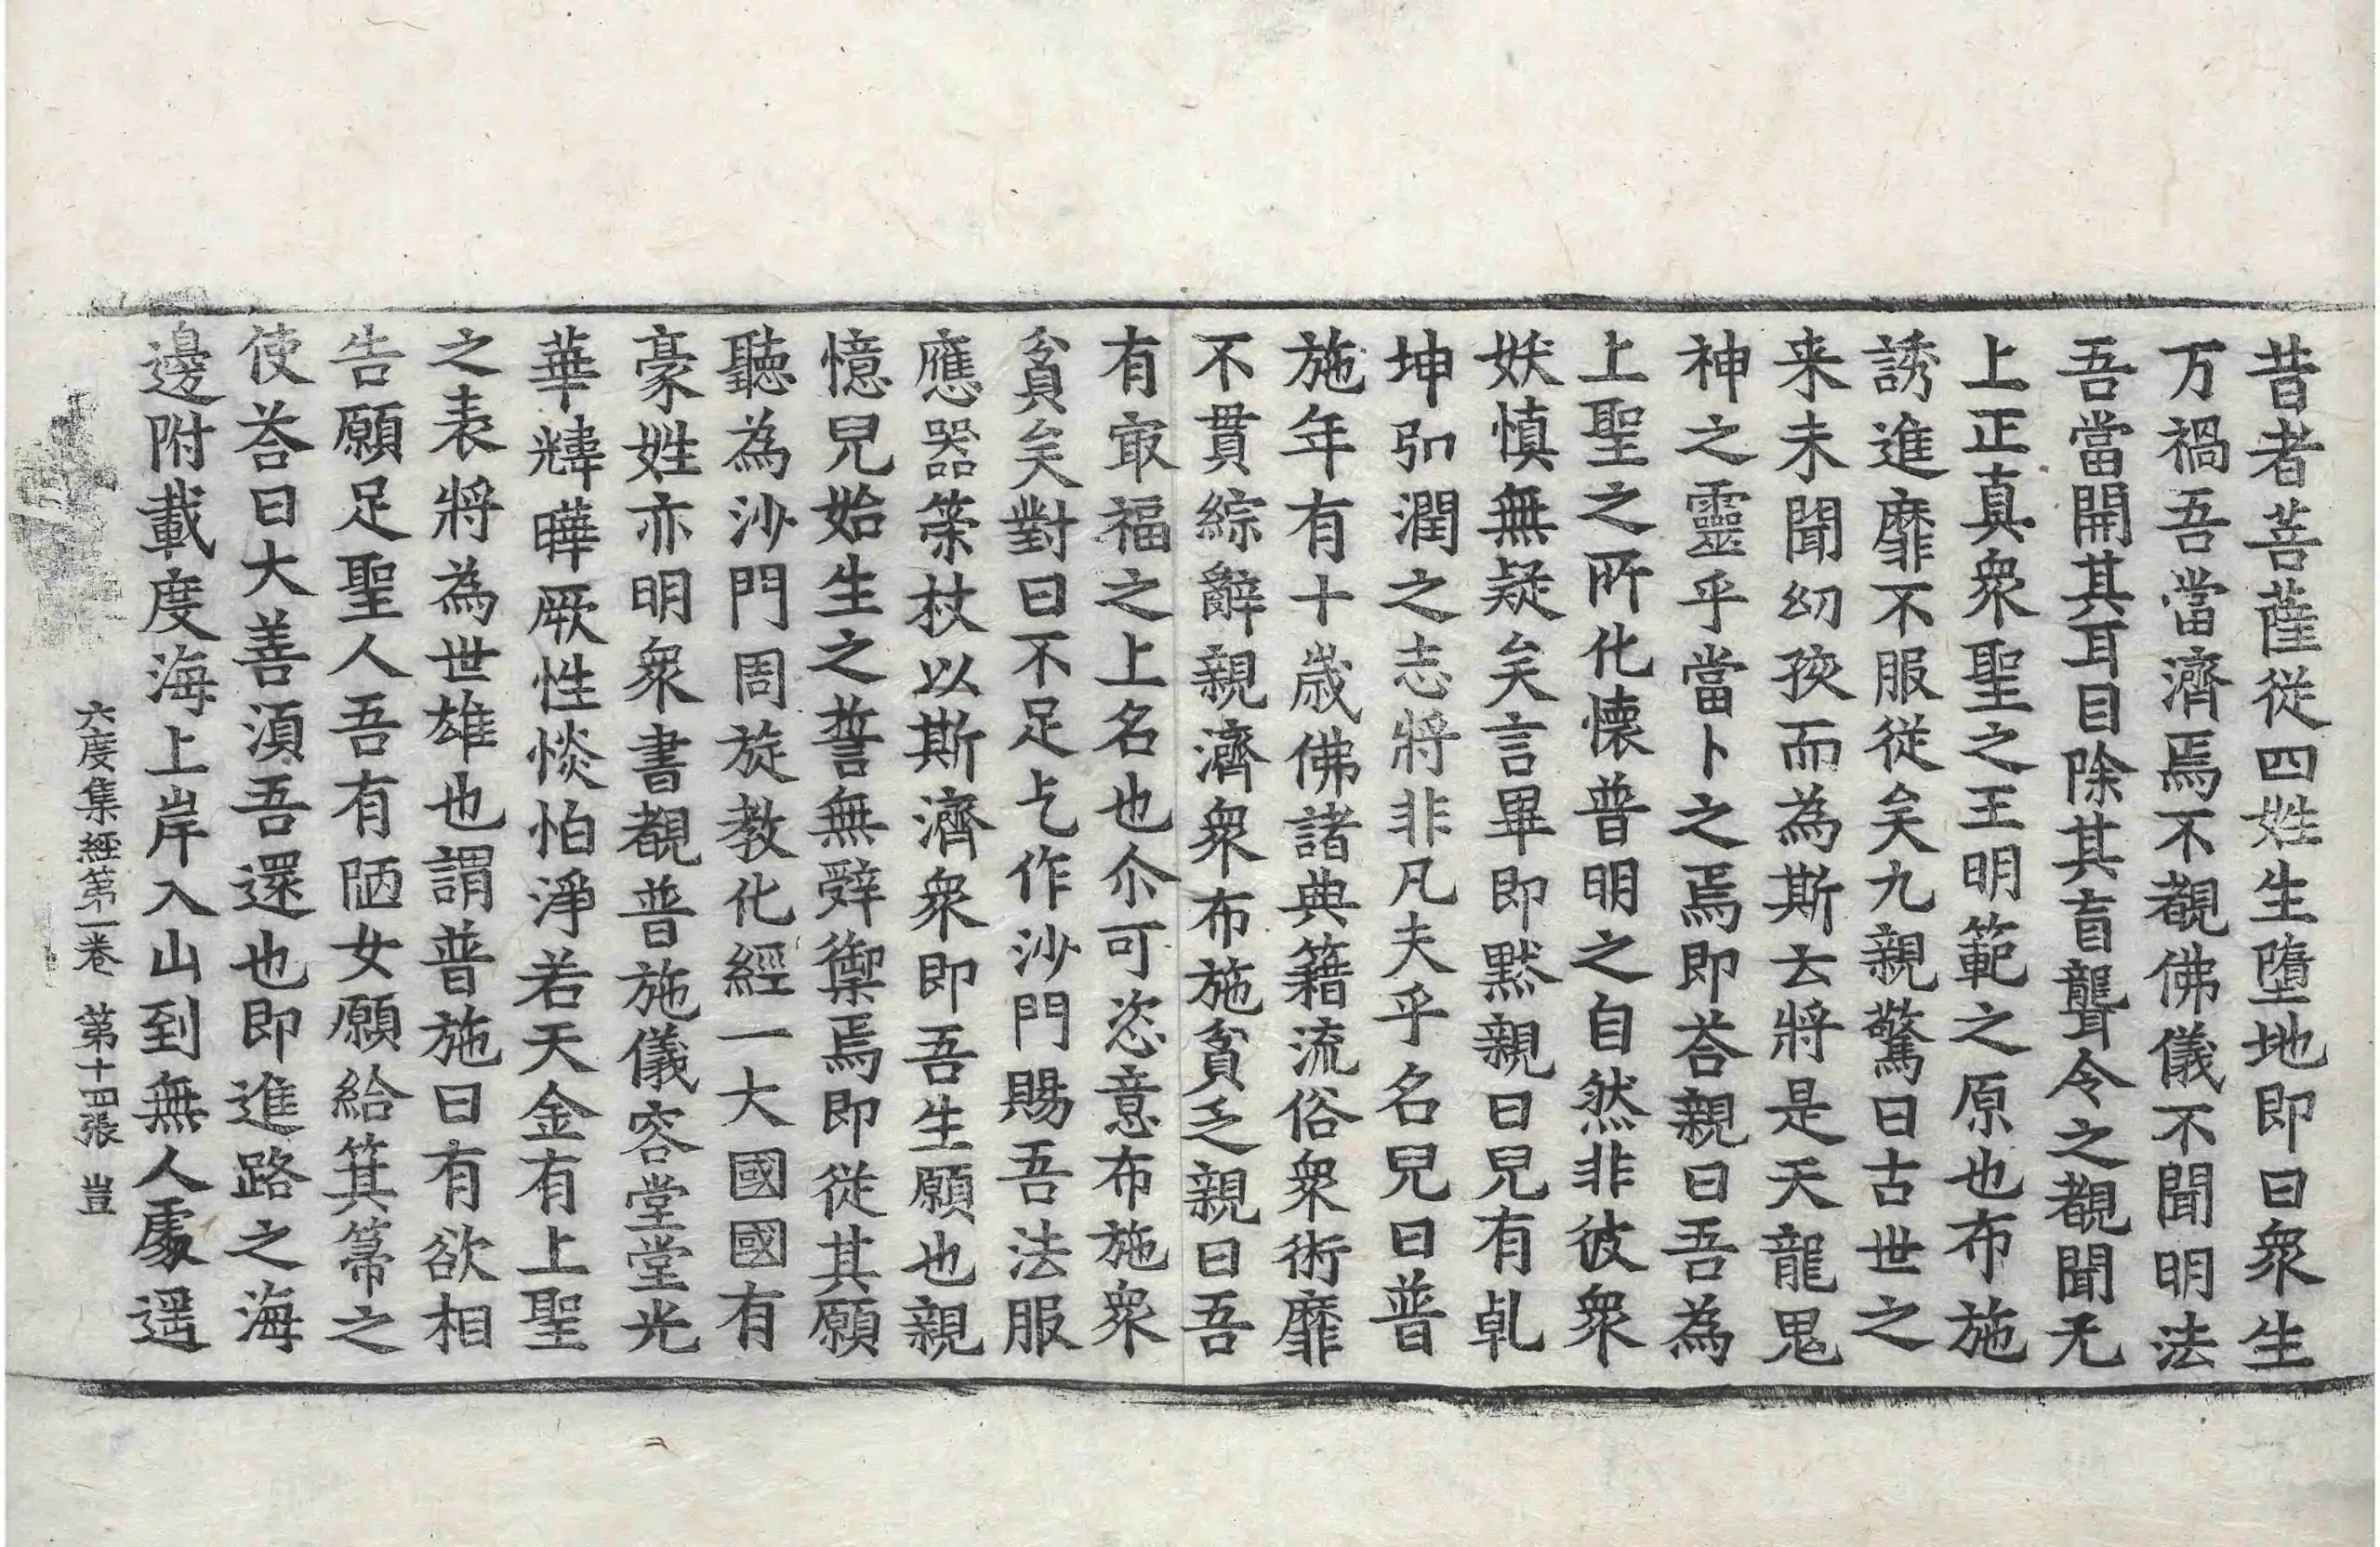 昔者菩薩從四姓生墮地即曰衆生
万禍吾當濟焉不覩佛儀不聞明法
吾當開其耳目除其盲聾令之覩聞无
上正真衆聖之王明範之原也布施
誘進靡不服從矣九親驚曰古世之
来未聞幼孩而為斯云將是天龍鬼
神之靈乎當卜之焉即荅親曰吾為
上聖之所化懷普明之自然非彼衆
妖慎無疑矣言畢即默親曰兒有乹
坤弘潤之志將非凡夫乎名兒曰普
施年有十歲佛諸典籍流俗衆術靡
不貫綜辭親濟衆布施貧乏親曰吾
有㝡福之上名也尒可恣意布施衆
貧矣對曰不足乞作沙門賜吾法服
應器䇿杖以斯濟衆即吾生願也親
憶兒始生之誓無辤禦焉即從其願
聽為沙門周旋教化經一大國國有
豪姓亦明衆書覩普施儀容堂堂光
華煒曄厥性惔怕淨若天金有上聖
之表將為世雄也謂普施曰有欲相
告願足聖人吾有陋女願給箕箒之
使荅曰大善湏吾還也即進路之海
邊附載度海上岸入山到無人處遥
六度集經第一卷 第十四張 豈